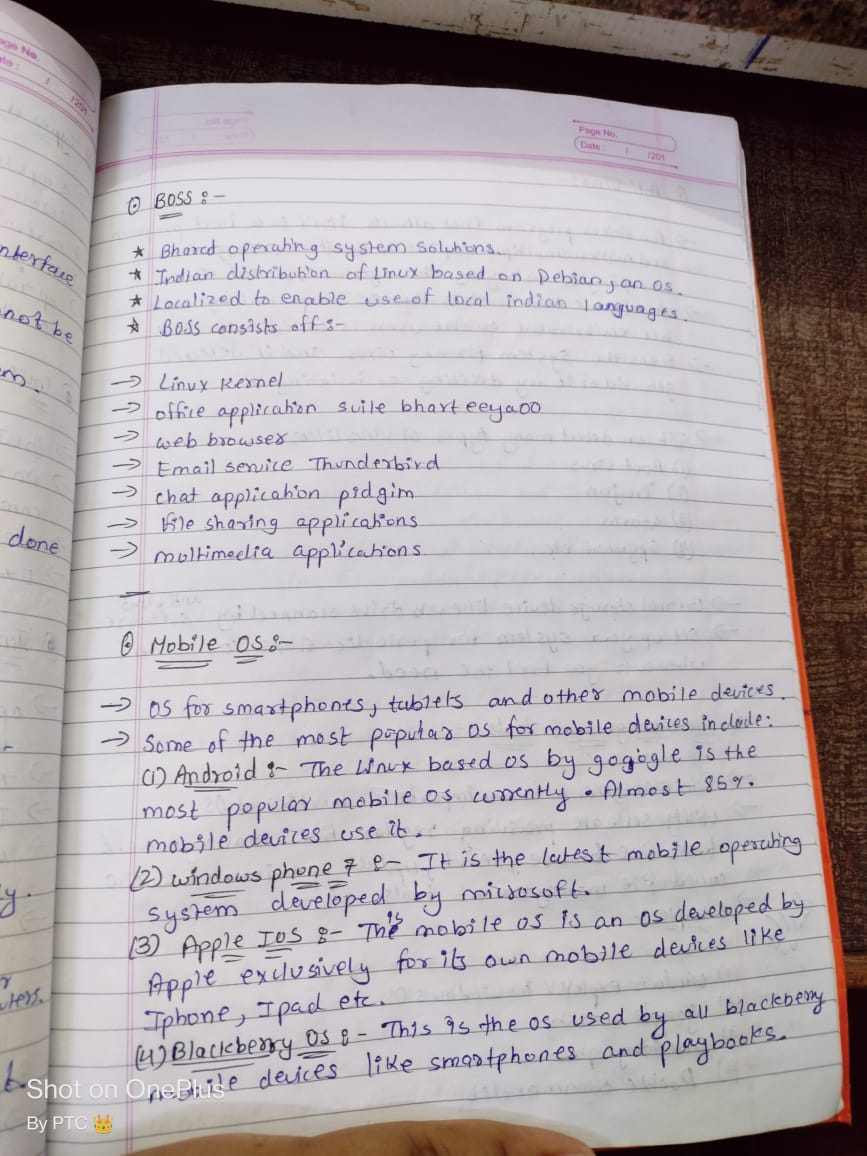 Page No.
Date : / /201
⊙ BOSS :-
★ Bharat operating system solutions.
★ Indian distribution of Linux based on Debian, an OS.
★ Localized to enable use of local indian languages.
★ BOSS consists off :-
→ Linux Kernel
→ office application suite bharteeyaoo
→ web browser
→ Email service Thunderbird
→ chat application pidgim
→ File sharing applications
→ multimedia applications.
⊙ Mobile OS :-
→ OS for smartphones, tablets and other mobile devices.
→ Some of the most popular OS for mobile devices include:
(1) Android :- The Linux based os by gogogle is the
most popular mobile os currently. Almost 85%.
mobile devices use it.
(2) windows phone 7 :- It is the latest mobile operating
system developed by microsoft.
(3) Apple IOS :- This mobile os is an os developed by
Apple exclusively for its own mobile devices like
Iphone, Ipad etc.
(4) Blackberry OS :- This is the os used by all blackberry
mobile devices like smartphones and playbooks.
Page No.
Date : / /201
nterface
not be
m.
done
y.
uters.
t.
Shot on OnePlus
By PTC 👑